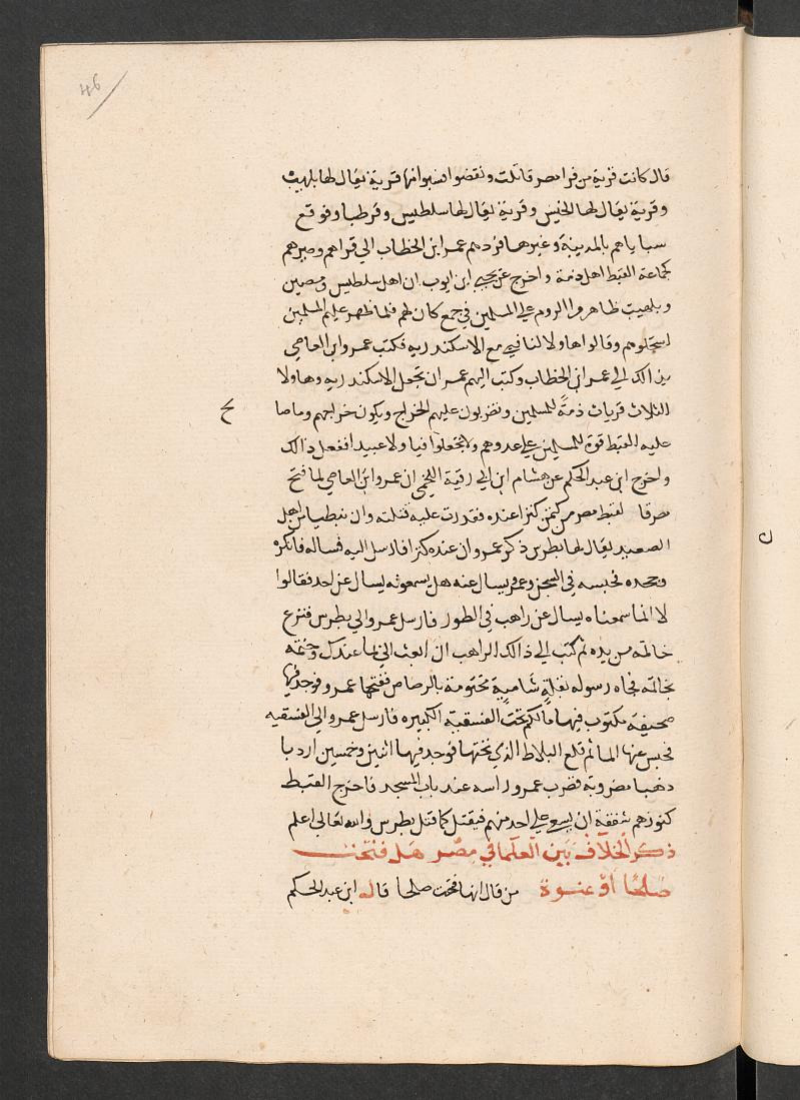 46
قال كانت قرية من قرا مصر قاتلت ونقضوا فسبوا منها قرية يقال لها بلهيب
وقرية يقال لها الخيس وقرية يقال لها سلطيس وقرطسا وفوقع
سباياهم بالمدينة وغيرها فردهم عمر ابن الخطاب الي قراهم وصيرهم
كجماعة القبط اهل ذمة واخرج عن يحيي ابن ايوب ان اهل سلطيس ومصيين
وبلهيب ظاهروا الروم علي المسلمين في جمع كان لهم فلما ظهر عليهم المسلمين
استحلوهم وقالوا هاولا لنا في مع الاسكندريه فكتب عمرو ابن العاصي
بذالك الي عمر ابن الخطاب وكتب اليهم عمر ان تجعل الاسكندريه وهاولا
الثلاث قريات ذمة للمسلمين ونضربون عليهم الخراج ويكون خراجهم وما صا
ح
عليه القبط قوة للمسلمين علي عدوهم ولا تجعلوا فيا ولا عبيدا ففعل ذالك
واخرج ابن عبد الحكم عن هشام ابن ابي رقية اللخمي ان عمرو ابن العاصي لما فتح
مصر قا لقبط مصر من كتمني كنزا عنده فقدرت عليه قتلته وان نبطيا من اهل
الصعيد يقال لها بطرس ذكر عمرو ان عنده كنزا فارسل اليه فساله فانكره
وجحده فحبسه في السجن وعمرو يسال عنه هل يسمعونه يسال عن احد فقالوا
لا انما سمعناه يسال عن راهب في الطور فارسل عمرو الي بطرس فنزع
خاتمه من يده ثم كتب الي ذالك الراهب ان ابعث الي لما عندك وختمه
بخاتمه فجاه رسوله بغلة شامية مختومة بالرصاص ففتحها عمرو فوجد فيها
صحيفة مكتوب فيها مالكم تحت الفسقية الكبيره فارسل عمرو الي الفسقيه
فحبس عنها الما ثم قلع البلاط الذي تحتها فوجد فيها اثنين وخمسين اردبا
ذهبا مضروبة فضرب عمرو راسه عند باب المسجد فاخرج القبط
كنوزهم شفقة ان يسعي علي احد منهم فيقتل كما قتل بطرس والله تعالي اعلم
ذكر الخلاف بين العلما في مصر هل فتحت
صلحا او عنوة من قال انها فتحت صلحا قاله ابن عبد الحكم